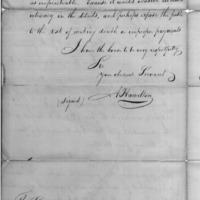 as impracticable because it would involve
intricacy in the details, and perhaps expose the public
to the risk of making double or improper payments
I have the honor to be very respectfully
Sir
Your obedient Servant
(signed) A Hamilton